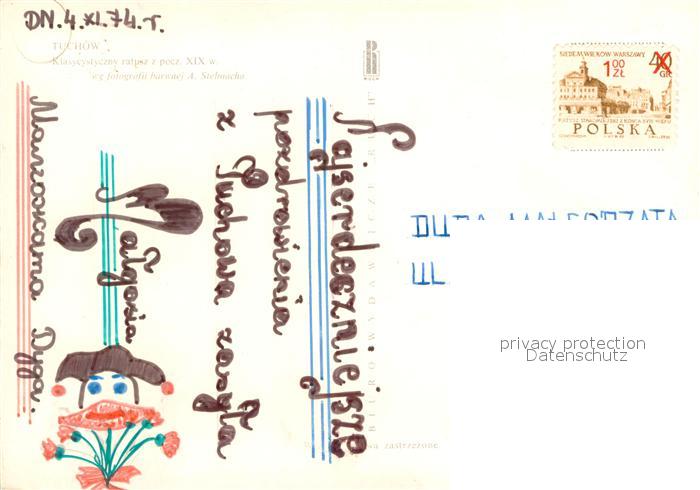 DN. 4. XI. 74. r.
TUCHÓW
Klasycystyczny ratusz z pocz. XIX w.
wg fotografii barwnej A. Stelmacha
SIEDEM WIEKÓW WARSZAWY
1 00 ZŁ
40 GR
POLSKA
Najserdeczniejsze
pozdrowienia
z Tuchowa zasyła
Małgosia
DUDA MAŁGORZATA
UL
privacy protection
Datenschutz
zastrzeżone